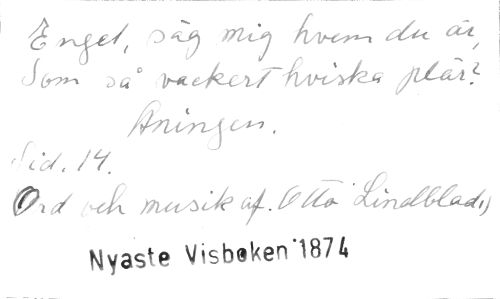 Engel, säg mig hvem du är,
Som så vackert hviska plär?
Aningen.
Sid. 14.
Ord och musik af. Otto Lindblad.)
Nyaste Visboken 1874